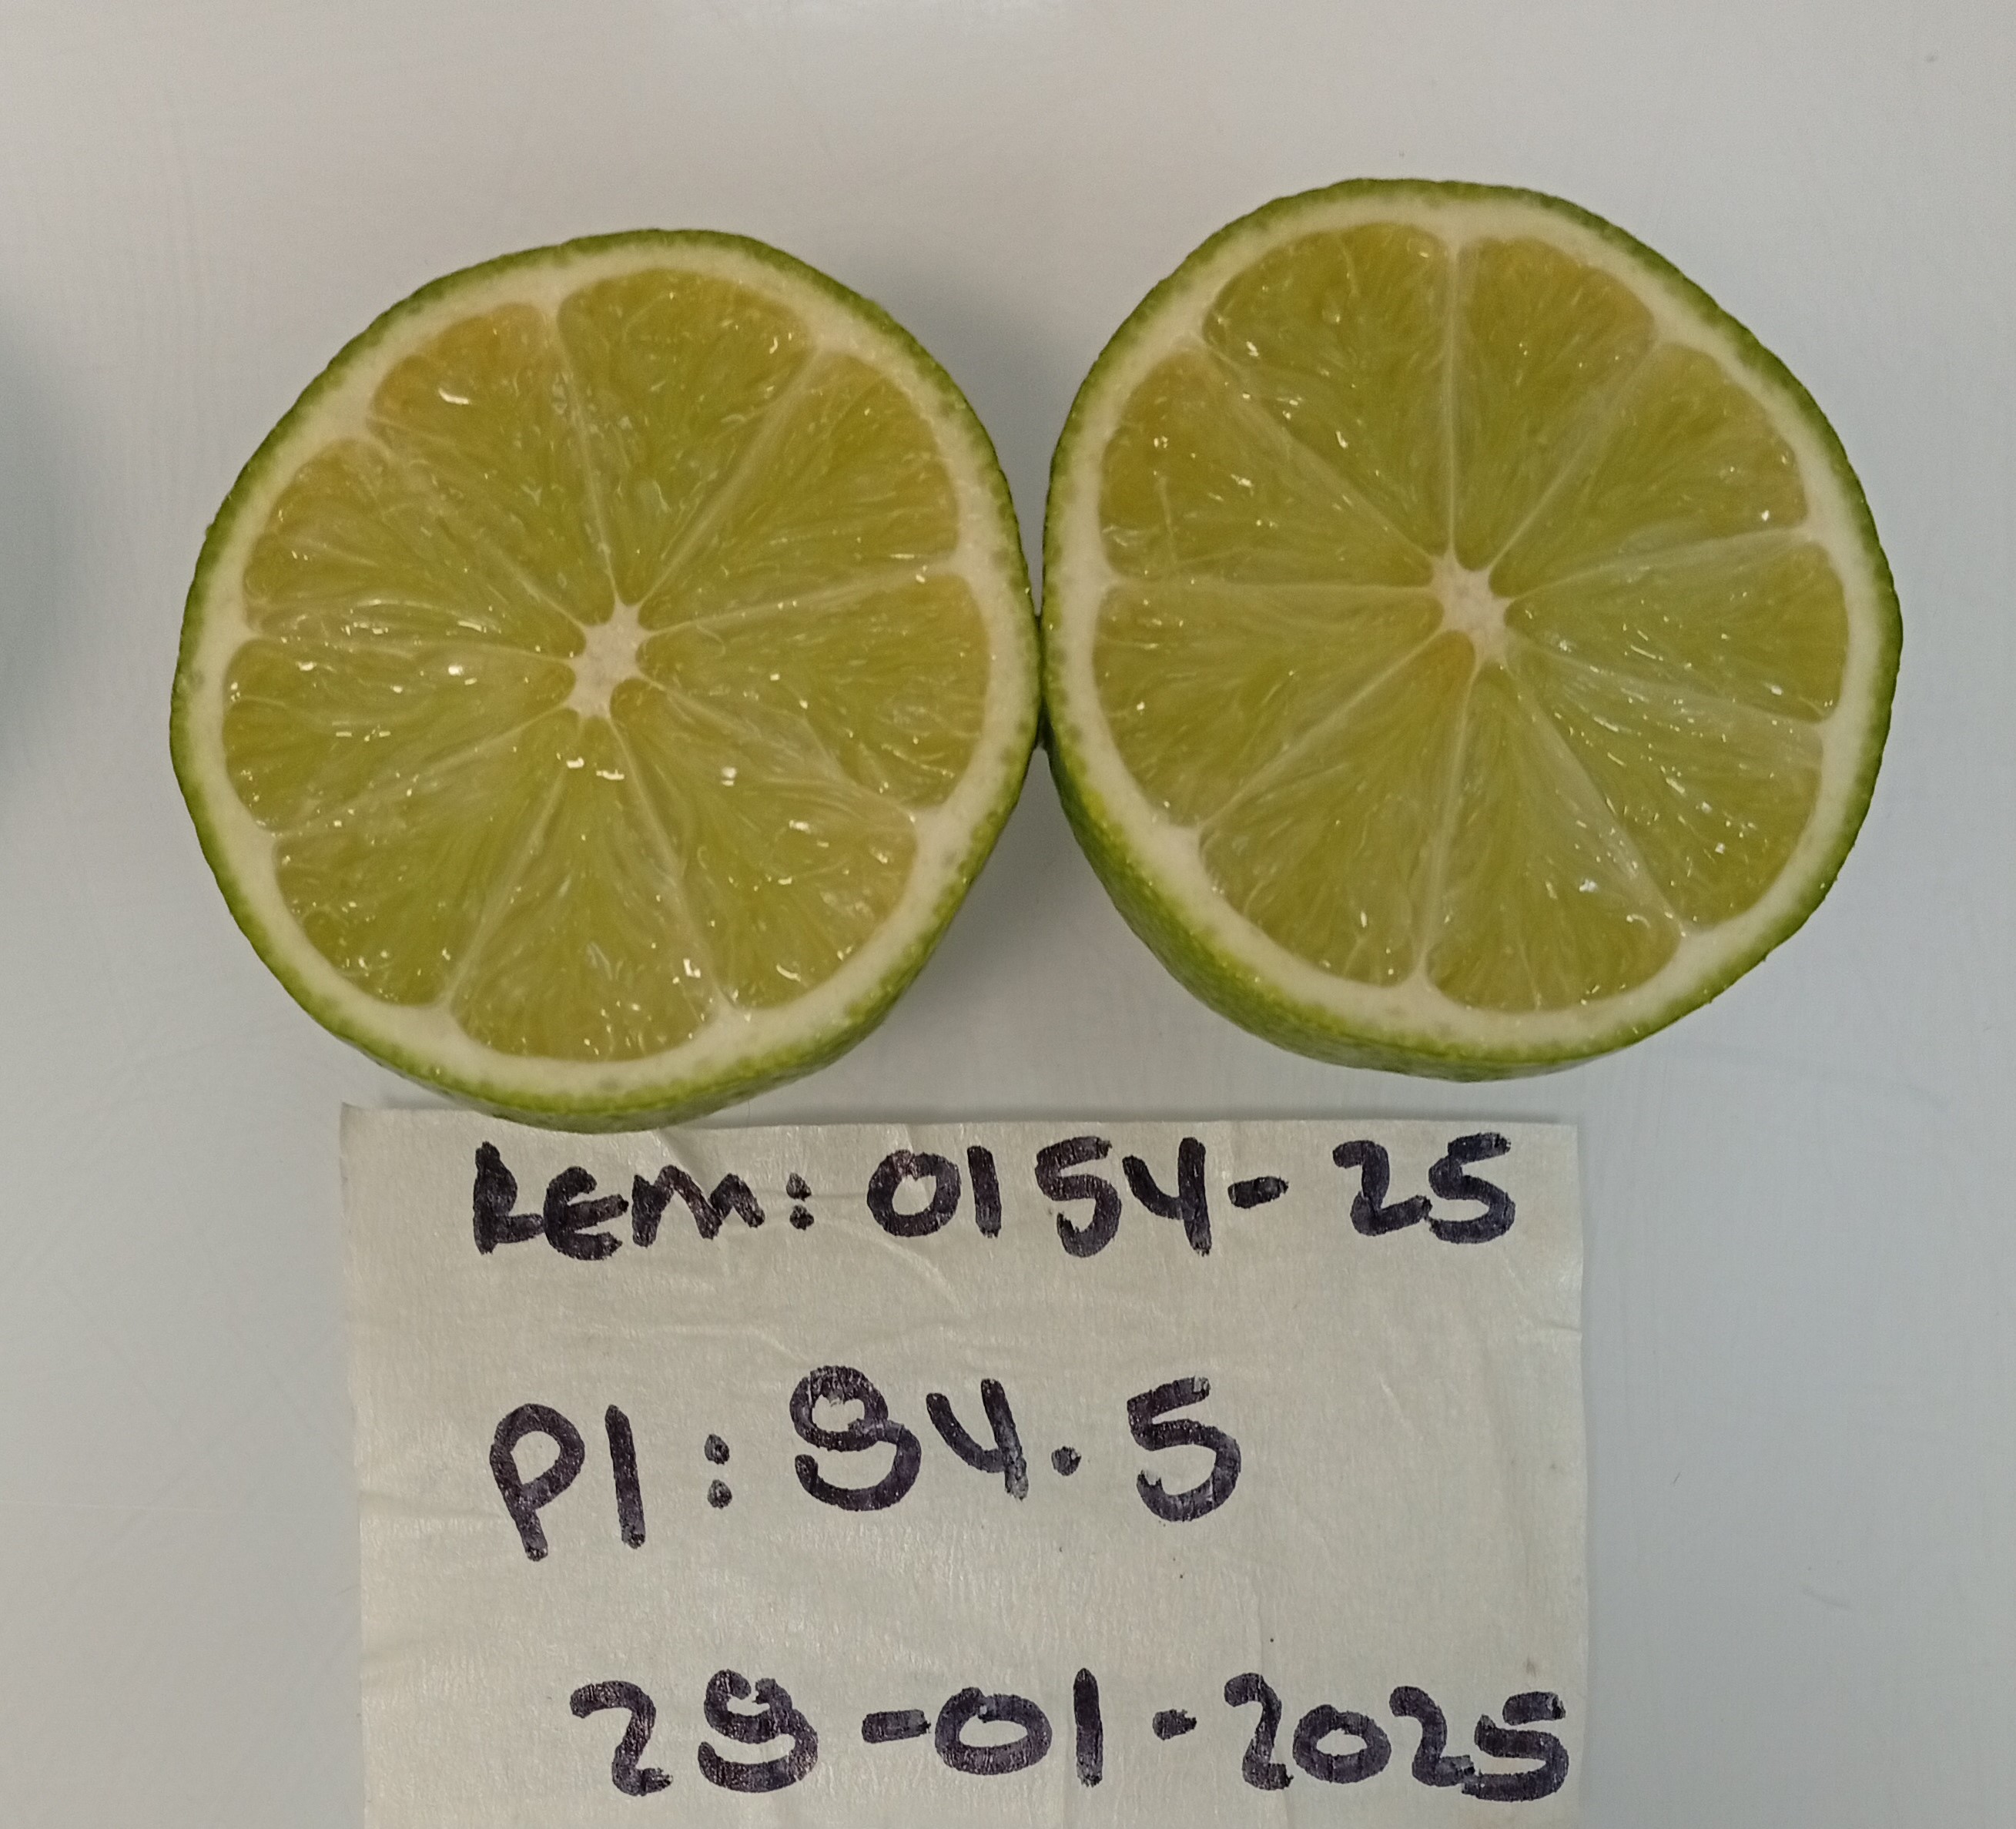 REM: 0154-25
PI: 94.5
29-01-2025